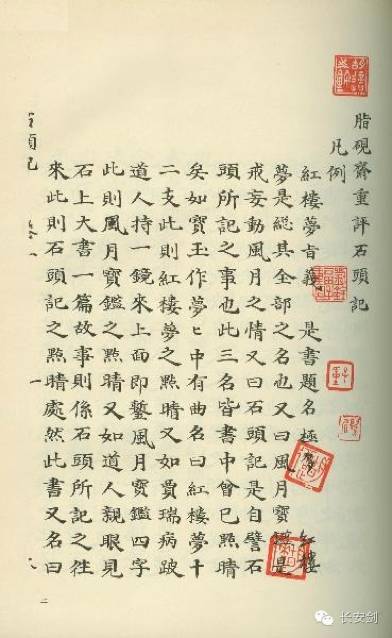 脂硯齋重評石頭記
凡例
紅樓夢旨義 是書題名極多 紅樓
夢是總其全部之名也又曰風月寶鑑是
戒妄動風月之情又曰石頭記是自譬石
頭所記之事也此三名皆書中曾已㸃睛
矣如寶玉作夢ヒ中有曲名曰紅樓夢十
二支此則紅樓夢之㸃睛又如賈瑞病跛
道人持一鏡來上面即鏨風月寶鑑四字
此則風月寶鑑之㸃睛又如道人親眼見
石上大書一篇故事則係石頭所記之往
來此則石頭記之㸃睛處然此書又名曰
石頭記 卷一 一
二
长安剑